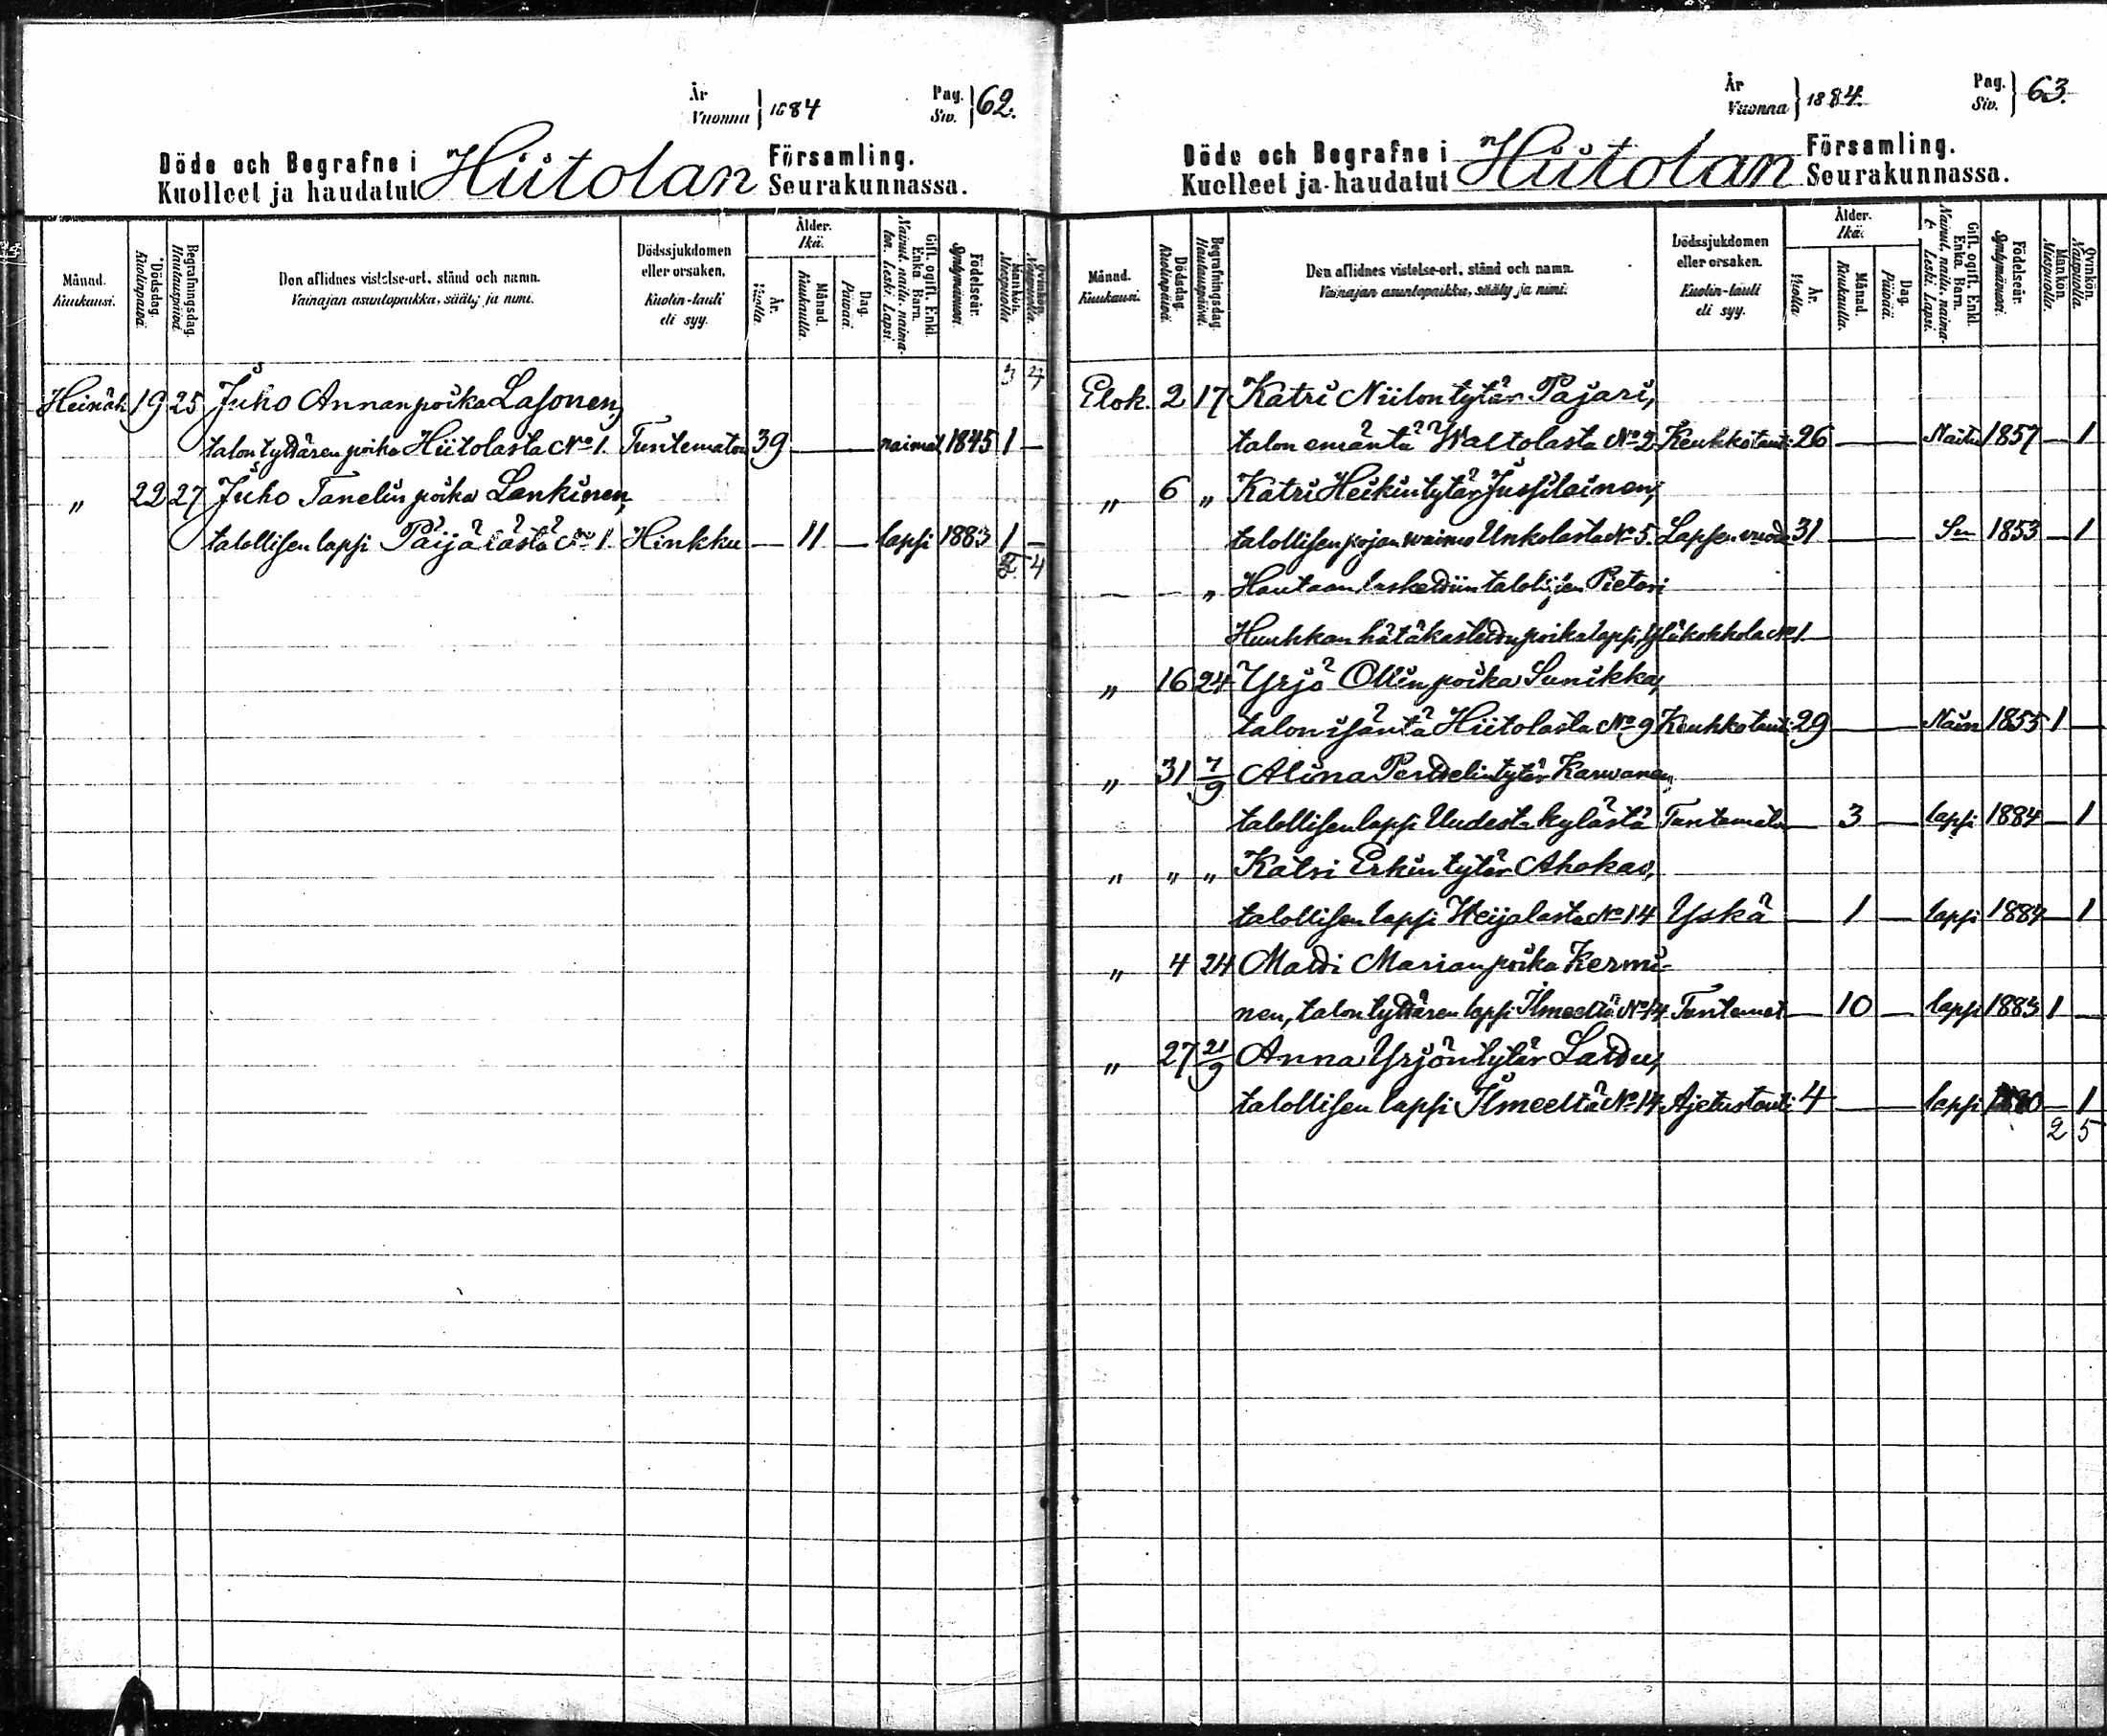 År
Vuonna } 1884
Pag.
Siv. } 62.
Döde och Begrafne i Hiitolan Församling.
Kuolleet ja haudatut Seurakunnassa.
Månad. Kuukausi.
Dödsdag. Kuolinpäivä.
Begrafningsdag. Hautauspäivä.
Den aflidnes vistelse-ort, stånd och namn.
Vainajan asuntopaikka, sääty ja nimi.
Dödssjukdomen eller orsaken.
Kuolin-tauti eli syy.
Ålder. Ikä.
År. Vuotta
Månad. Kuukautta.
Dag. Päivää.
Gift, ogift, Enkl. Enka, Barn.
Nainut, naitu, naimaton, Leski, Lapsi.
Födelseår. Syntymävuosi.
Mankön. Miespuolia.
Qvinkön. Naispuolia.
3 4
Heinäk. 19 25 Juho Annanpoika Lasonen,
talon tyttären poika Hiitolasta No 1. Tuntematon 39 — — naimat 1845 1 —
„ 22 27 Juho Tanelin poika Lankinen,
talollisen lapsi Päijälästä No 1 Hinkku — 11 — lapsi 1883 1 —
4
År
Vuonna } 1884.
Pag.
Siv. } 63.
Döde och Begrafne i Hiitolan Församling.
Kuolleet ja haudatut Seurakunnassa.
Månad. Kuukausi.
Dödsdag. Kuolinpäivä.
Begrafningsdag. Hautauspäivä.
Den aflidnes vistelse-ort, stånd och namn.
Vainajan asuntopaikka, sääty ja nimi.
Dödssjukdomen eller orsaken.
Kuolin-tauti eli syy.
Ålder. Ikä.
År. Vuotta
Månad. Kuukautta.
Dag. Päivää.
Gift, ogift, Enkl. Enka, Barn.
Nainut, naitu, naima- Leski, Lapsi.
Födelseår. Syntymävuosi.
Mankön. Miespuolia.
Qvinkön. Naispuolia.
Elok. 2 17 Katri Niilontytär Pajari,
talon emäntä Waltolasta No 2 Keuhkotauti 26 — — Naitu 1857 — 1
„ 6 „ Katri Heikintytär Jussilainen,
talollisen pojan waimo Unkolasta No 5. Lapsenvuode 31 — — 1853 — 1
— — „ Hautaan laskettiin talollisen Pietari
Huuhkan hätäkastettu poikalapsi, Yläkokkola No 1
„ 16 24 Yrjö Ollinpoika Sunikka,
talon isäntä Hiitolasta No 9 Keuhkotauti 29 — — Nain 1855 1 —
„ 31 7/9 Alina Perttelintytär Karwanen,
talollisen lapsi Uudesta kylästä Tuntematon — 3 — lapsi 1884 — 1
„ „ „ Katri Erkintytär Ahokas,
talollisen lapsi Weijalasta No 14 Yskä — 1 — lapsi 1884 — 1
„ 4 24 Matti Marianpoika Kermi-
nen, talon tyttären lapsi Ilmeeltä No 14 Tuntemat — 10 — lapsi 1883 1 —
„ 27 21/9 Anna Yrjöntytär Lattu,
talollisen lapsi Ilmeeltä No 14 Ajetustauti 4 — — lapsi 1880 — 1
2 5